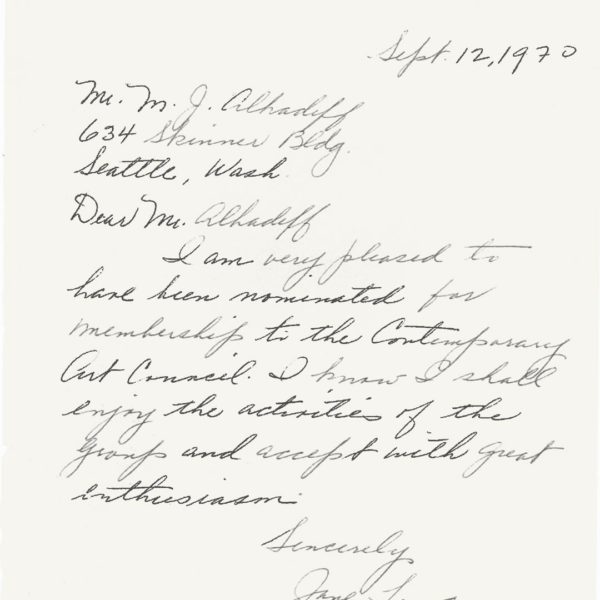 Sept. 12, 1970
Mr. M. J. Alhadeff
634 Skinner Bldg.
Seattle, Wash.
Dear Mr. Alhadeff
I am very pleased to
have been nominated for
membership to the Contemporary
Art Council. I know I shall
enjoy the activities of the
group and accept with great
enthusiasm.
Sincerely
Jane